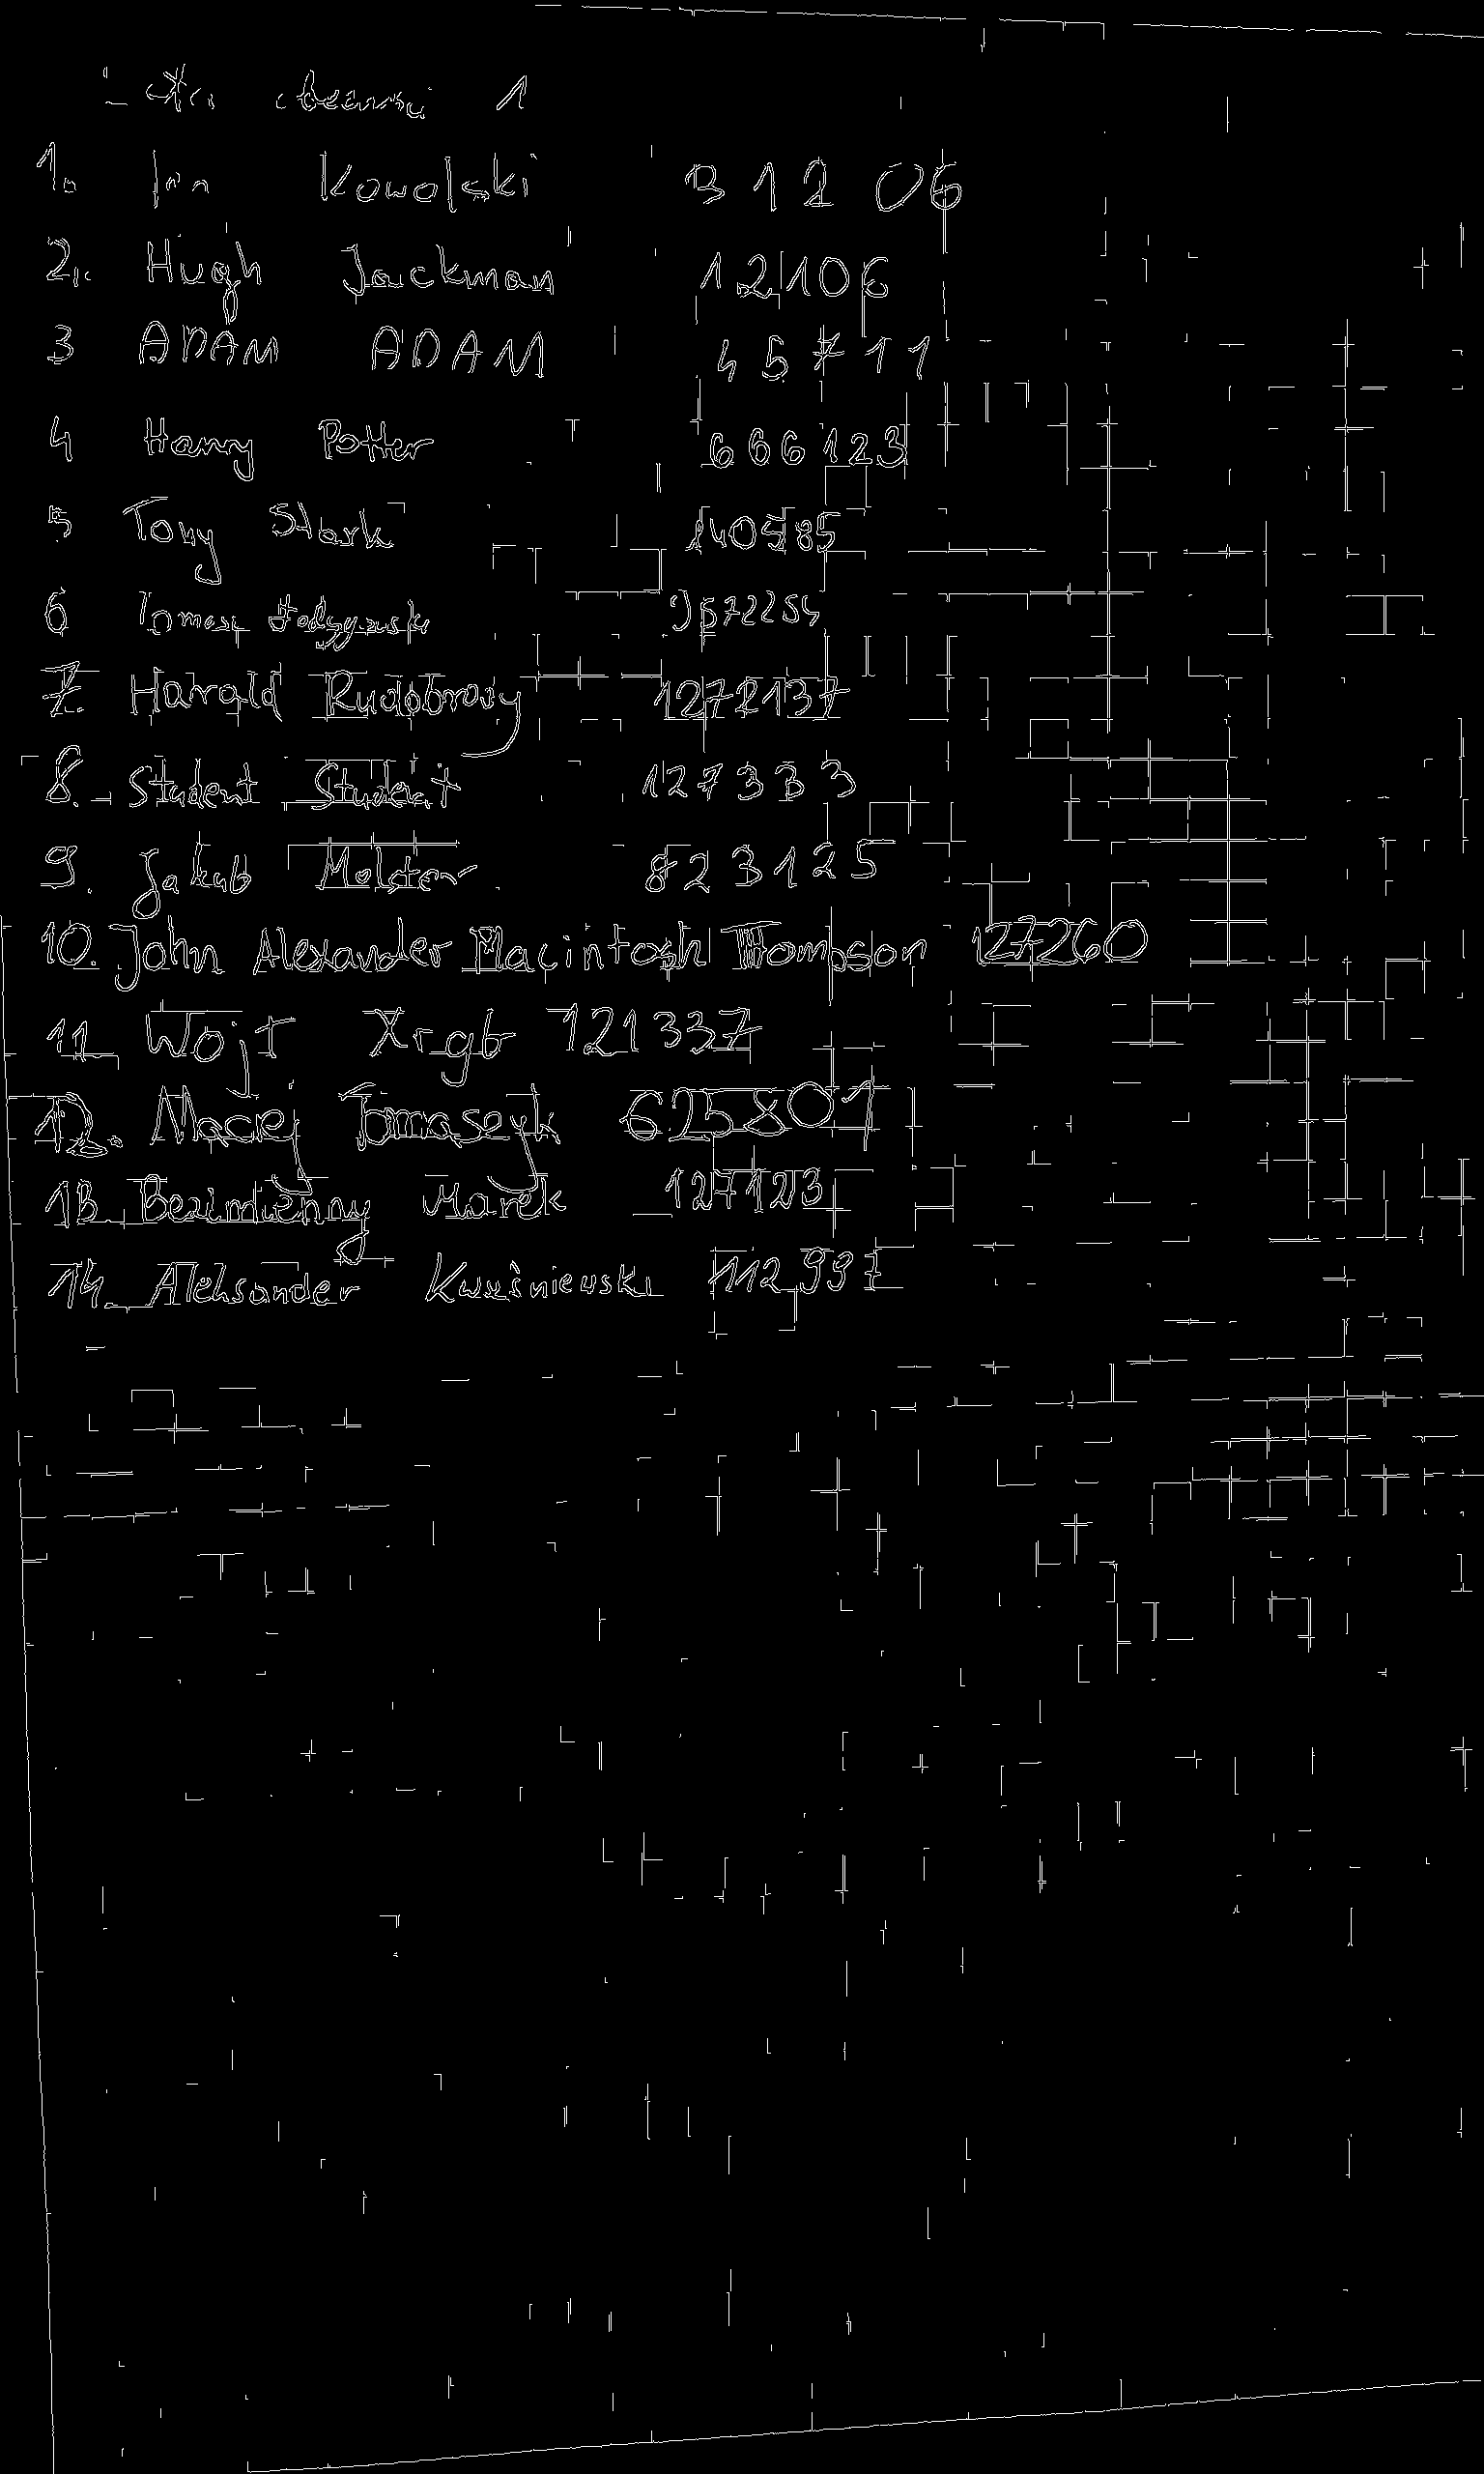 1
1. Jan Kowalski 31206
2. Hugh Jackman 12106
3 ADAM ADAM 45711
4 Harry Potter 666123
5 Tony Stark 140585
6 Tomasz
7. Harald Rudobrody 1272137
8. Student Student 127333
9. Jakub Molster 823125
10. John Alexander Macintosh Thompson 127260
11 Wojt Xrgb 121337
12. Maciej Tomaszyk 625801
13 Bezimienny Marek 127123
14. Aleksander Kwaśniewski